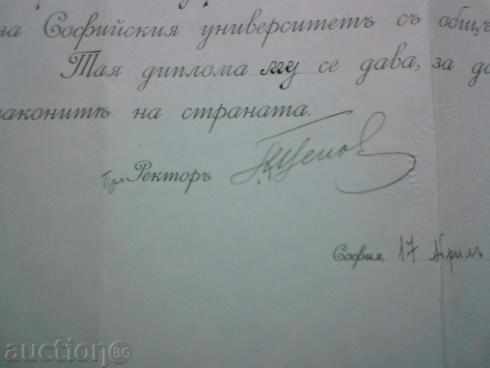 на Софийския университетъ съ общъ
Тая диплома му се дава, за да
законитѣ на страната.
Ректоръ
София, 17 Априлъ
auction BG